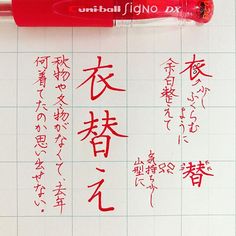 uni-ball Signo DX
衣 少し
ふくらむ
ように
余白整えて
替
気持ち少し
山型に
衣替え
秋物や冬物がなくて、去年
何着てたのか思い出せない!